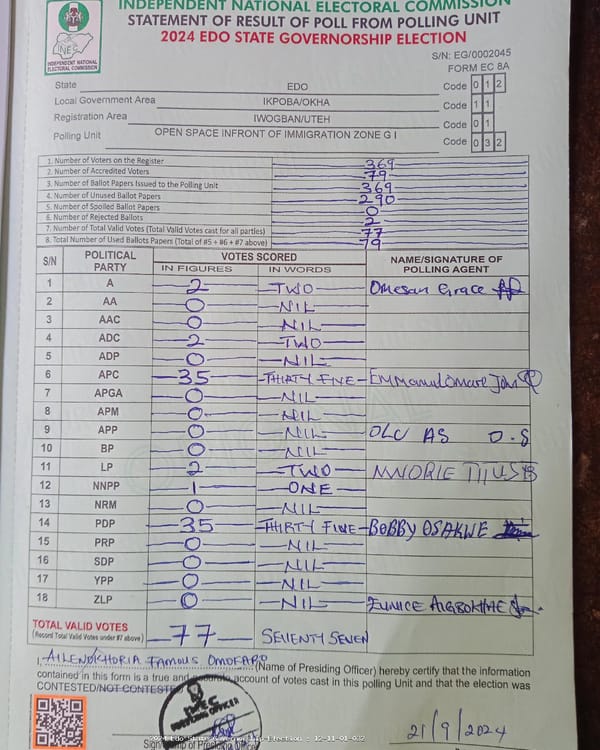 INDEPENDENT NATIONAL ELECTORAL COMMISSION
STATEMENT OF RESULT OF POLL FROM POLLING UNIT
2024 EDO STATE GOVERNORSHIP ELECTION
INEC
INDEPENDENT NATIONAL ELECTORAL COMMISSION
S/N: EG/0002045
FORM EC 8A
State EDO Code 0 1 2
Local Government Area IKPOBA/OKHA Code 1 1
Registration Area IWOGBAN/UTEH Code 0 1
Polling Unit OPEN SPACE INFRONT OF IMMIGRATION ZONE G I Code 0 3 2
1. Number of Voters on the Register 369
2. Number of Accredited Voters 79
3. Number of Ballot Papers Issued to the Polling Unit 369
4. Number of Unused Ballot Papers 290
5. Number of Spoiled Ballot Papers 0
6. Number of Rejected Ballots 2
7. Number of Total Valid Votes (Total Valid Votes cast for all parties) 77
8. Total Number of Used Ballots Papers (Total of #5 + #6 + #7 above) 79
S/N POLITICAL PARTY VOTES SCORED NAME/SIGNATURE OF POLLING AGENT
IN FIGURES IN WORDS
1 A 2 TWO Omesan Grace
2 AA 0 NIL
3 AAC 0 NIL
4 ADC 2 TWO
5 ADP 0 NIL
6 APC 35 THIRTY FINE
7 APGA 0 NIL
8 APM 0 NIL
9 APP 0 NIL OLU AS O.S
10 BP 0 NIL
11 LP 2 TWO
12 NNPP 1 ONE
13 NRM 0 NIL
14 PDP 35 THIRTY FINE BOBBY OSAKWE
15 PRP 0 NIL
16 SDP 0 NIL
17 YPP 0 NIL
18 ZLP 0 NIL EUNICE
TOTAL VALID VOTES 77 SEVENTY SEVEN
(Record Total Valid Votes under #7 above)
I, FAMOUS (Name of Presiding Officer) hereby certify that the information
contained in this form is a true and accurate account of votes cast in this polling Unit and that the election was
CONTESTED/NOT CONTESTED
PRESIDING OFFICER
21/9/2024